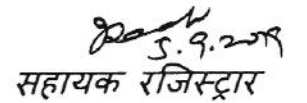 5.9.2019
सहायक रजिस्ट्रार